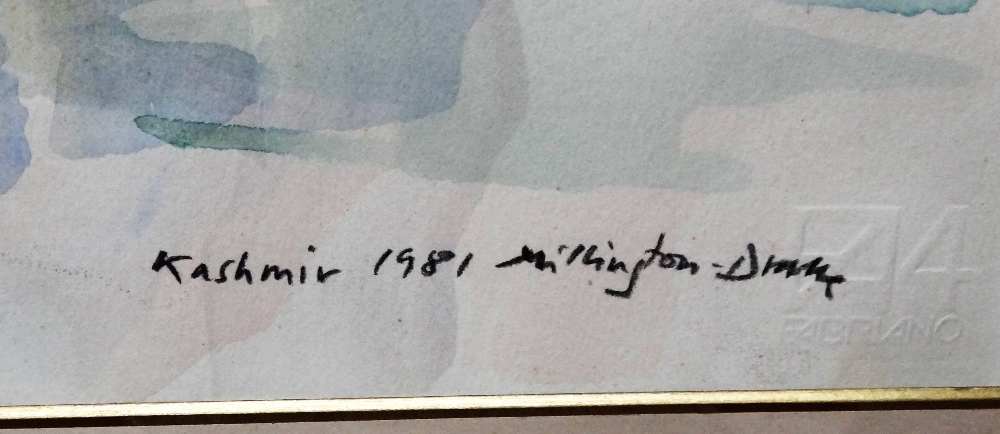 Kashmir 1981 Millington-Drake
4
FABRIANO